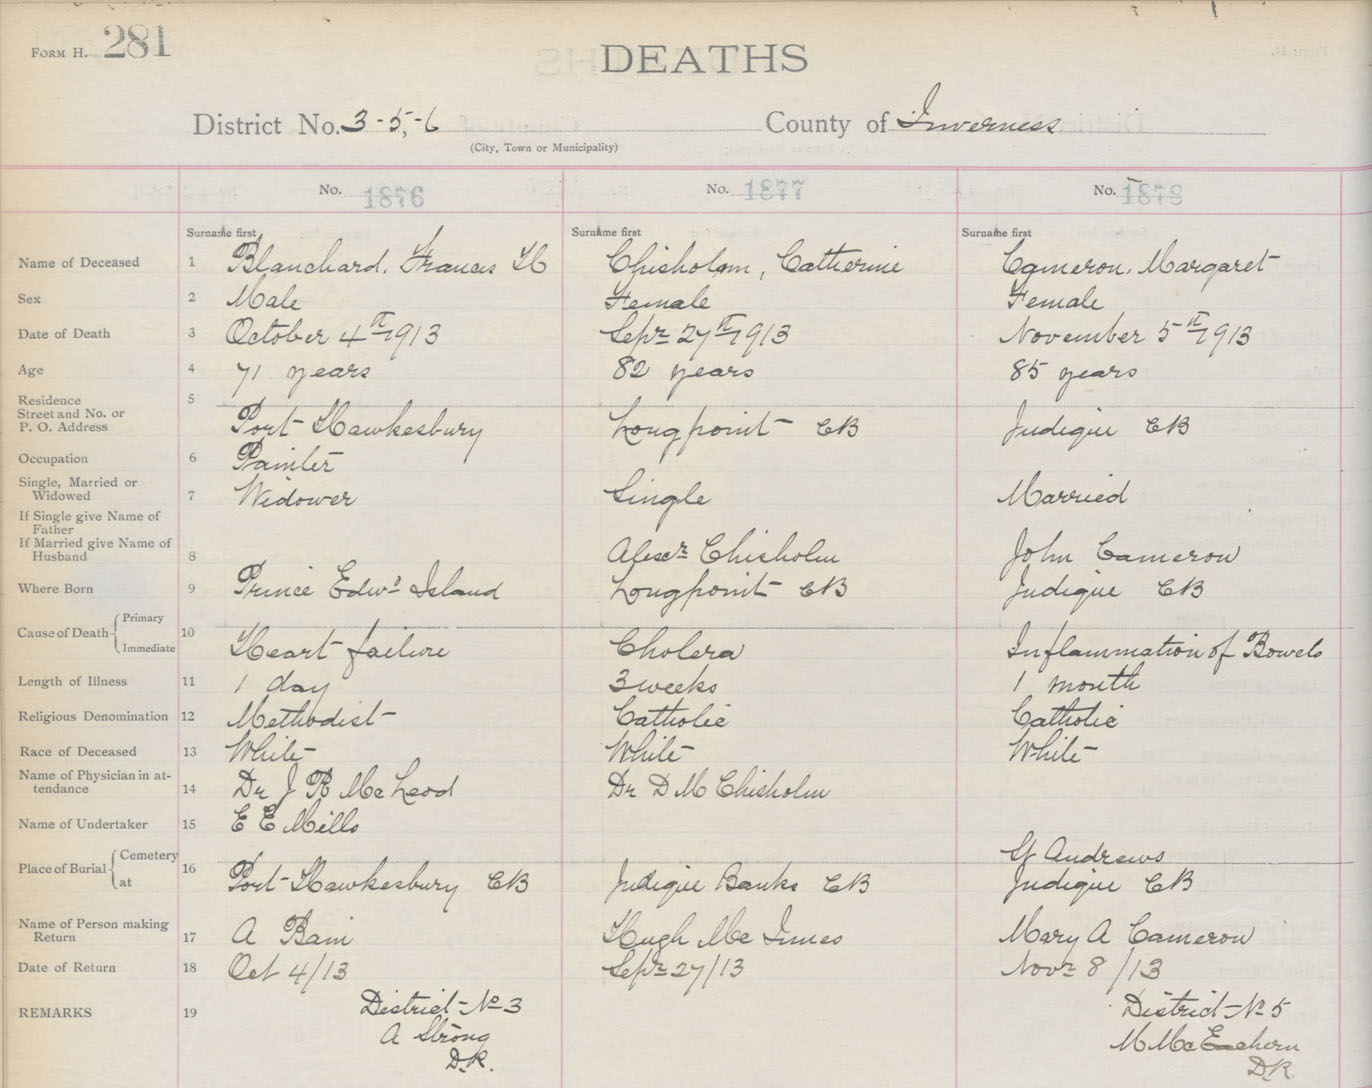 FORM H. 281
DEATHS
District No. 3-5,-6 County of Inverness
(City, Town or Municipality)
No. 1876 No. 1877 No. 1878
Surname first Surname first Surname first
Name of Deceased 1 Blanchard, Francis H Chisholm, Catherine Cameron, Margaret
Sex 2 Male Female Female
Date of Death 3 October 4th 1913 Sepr 27th 1913 November 5th 1913
Age 4 71 years 82 years 85 years
Residence 5
Street and No. or
P. O. Address Port Hawkesbury Longpoint CB Judique CB
Occupation 6 Painter
Single, Married or
Widowed 7 Widower Single Married
If Single give Name of
Father
If Married give Name of
Husband 8 Alexr Chisholm John Cameron
Where Born 9 Prince Edwd Island Longpoint CB Judique CB
Cause of Death Primary
Immediate 10 Heart failure Cholera Inflammation of Bowels
Length of Illness 11 1 day 3 weeks 1 month
Religious Denomination 12 Methodist Catholic Catholic
Race of Deceased 13 White White White
Name of Physician in at-
tendance 14 Dr J R McLeod Dr D M Chisholm
Name of Undertaker 15 E E Mills
Place of Burial Cemetery St Andrews
at 16 Port Hawkesbury CB Judique Banks CB Judique CB
Name of Person making
Return 17 A Bain Hugh Mc Innes Mary A Cameron
Date of Return 18 Oct 4/13 Sepr 27/13 Novr 8/13
REMARKS 19 District No 3 District No 5
A Strong M McEachern
D.R. D.R.